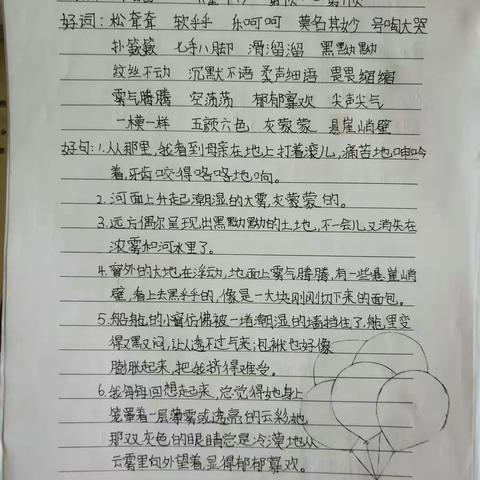 好词：松耷耷 软乎乎 乐呵呵 莫名其妙 号啕大哭
扑簌簌 七手八脚 滑溜溜 黑黝黝
纹丝不动 沉默不语 柔声细语 畏畏缩缩
雾气腾腾 空荡荡 郁郁寡欢 尖声尖气
一模一样 五颜六色 灰蒙蒙 悬崖峭壁
好句：1.从那里，我看到母亲在地上打着滚儿，痛苦地呻吟
着，牙齿咬得咯咯地响。
2.河面上升起潮湿的大雾，灰蒙蒙的。
3.远方偶尔呈现出黑黝黝的土地，不一会儿又消失在
浓雾和河水里了。
4.窗外的大地在浮动，地面上雾气腾腾，有一些悬崖峭
壁，看上去黑乎乎的，像是一大块刚刚切下来的面包。
5.船舱的小窗仿佛被一堵潮湿的墙挡住了，舱里变
得又黑又闷，让人透不过气来；包袱也好像
膨胀起来，把我挤得难受。
6.我每每回想起来，总觉得她身上
笼罩着一层薄雾或透亮的云彩她
那双灰色的眼睛总是冷漠地从
云雾里向外望着，显得郁郁寡欢。